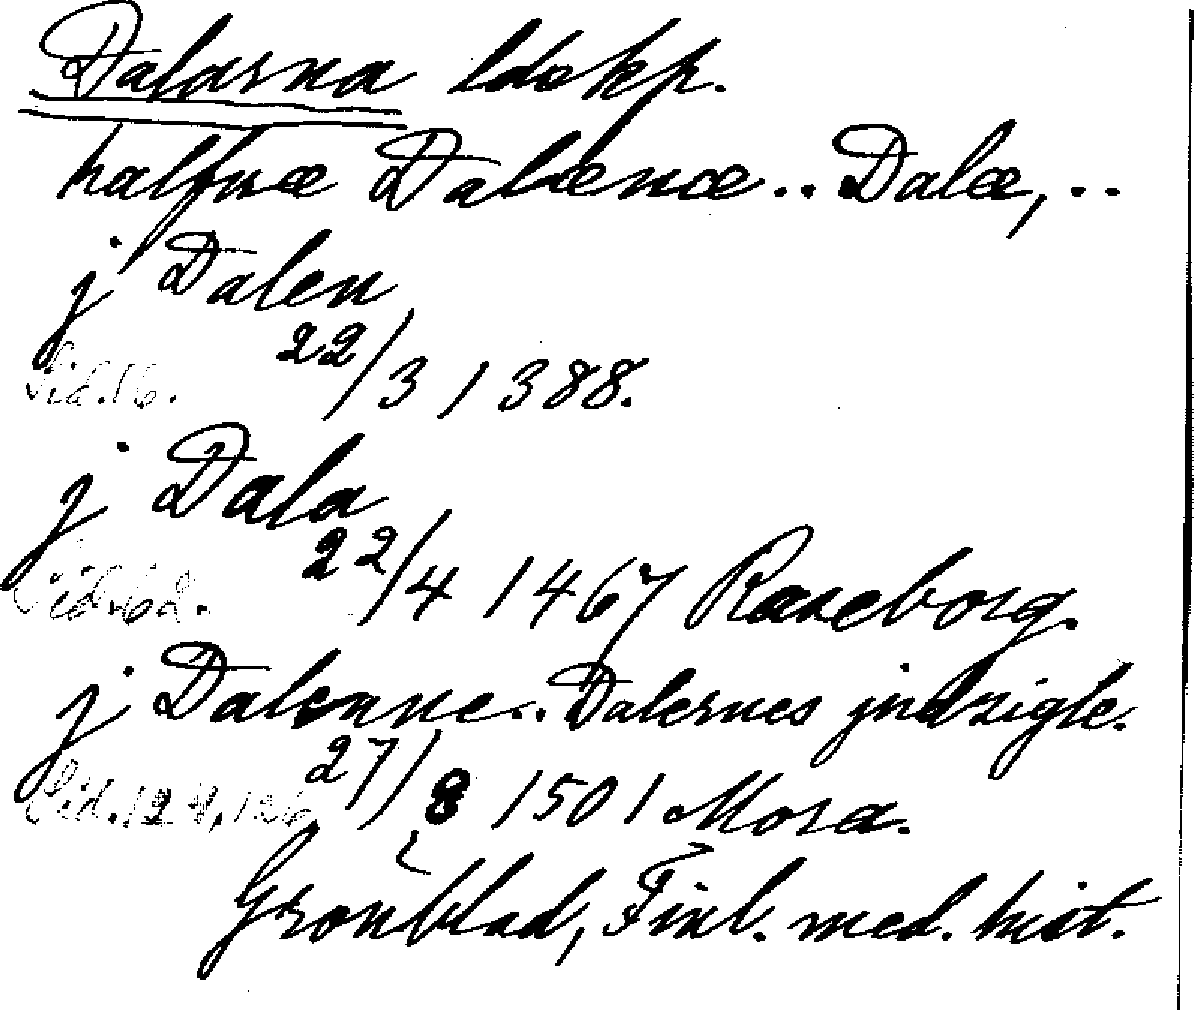 Dalarna ldskp.
halfuæ Dalænæ .. Dalæ, ..
j Dalen
22/3 1388.
Sid. 16.
j Dala
22/4 1467 Raseborg.
Sid. 62.
j Dalenne .. Dalernes jndzigle.
27/8 1501 Mora.
Sid. 124, 126
Grönblad, Finl. med. hist.